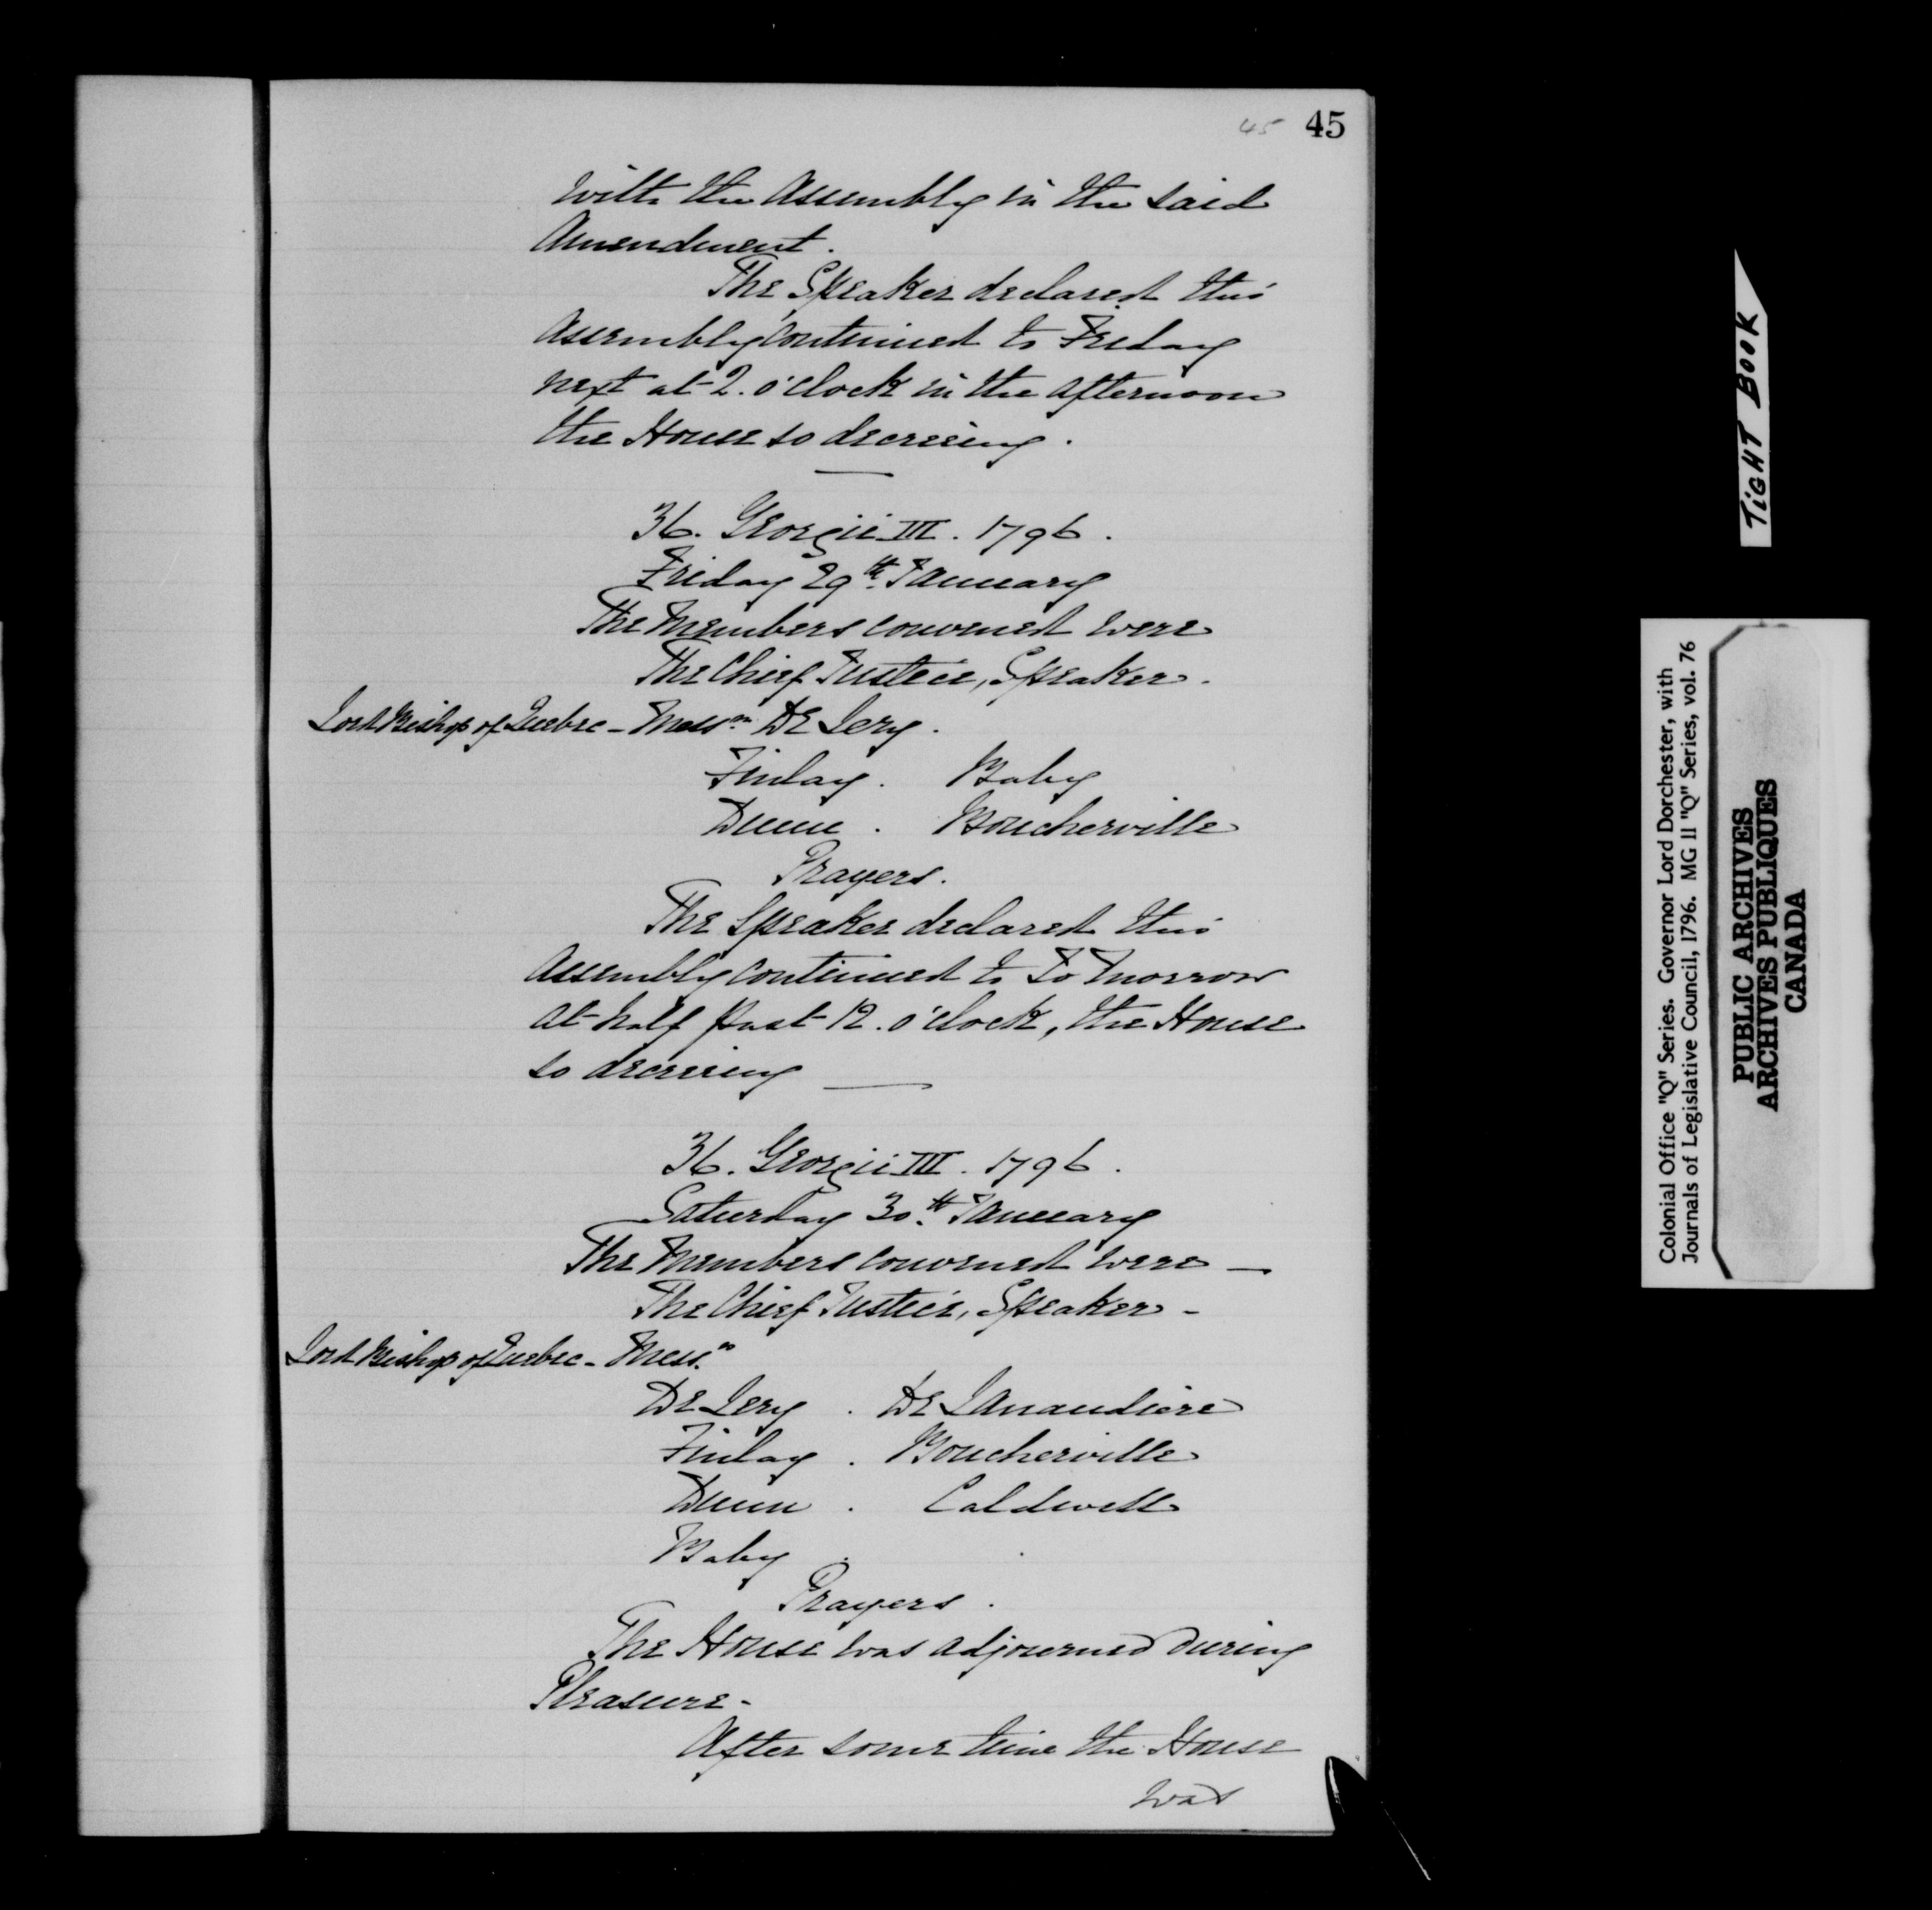 45 45
with the Assembly in the said
Amendment.
The Speaker declared this
Assembly continued to Friday
next at 2. o'clock in the afternoon
the House so decreeing.
36. Georgii III. 1796.
Friday 29th. January
The Members convened were
The Chief Justice, Speaker.
Lord Bishop of Quebec - Messrs. De Lery.
Finlay. Baby
Dunn. Boucherville
Prayers.
The Speaker declared this
Assembly continued to To Morrow
at half past 12. o'clock, the House
so decreeing
36. Georgii III. 1796.
Saturday 30.th January
The Members convened were —
The Chief Justice, Speaker -
Lord Bishop of Quebec - Messrs.
De Lery. De Lanaudiere
Finlay. Boucherville
Dunn. Caldwell
Baby.
Prayers.
The House was adjourned during
Pleasure -
After some time the House
was
TIGHT BOOK
Colonial Office "Q" Series. Governor Lord Dorchester, with
Journals of Legislative Council, 1796. MG 11 "Q" Series, vol. 76
PUBLIC ARCHIVES
ARCHIVES PUBLIQUES
CANADA